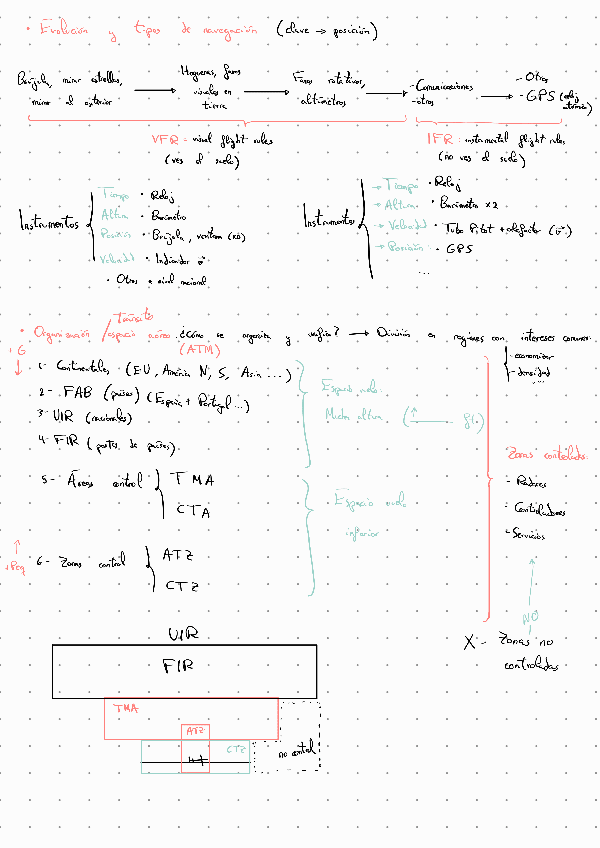 • Evolución y tipos de navegación (clave → posición)
Brújula, mirar estrellas,
mirar al exterior
Hogueras, faros
visuales en
tierra
Faros rotativos,
altímetros
-Comunicaciones
-otros
-Otros
-GPS (reloj
atómico)
VFR: visual flight rules
(ves el suelo)
IFR: instrumental flight rules
(no ves el suelo)
Instrumentos
Tiempo • Reloj
Altura • Barómetro
Posición • Brújula, ventana
Velocidad • Indicador
• Otros a nivel nacional
Instrumentos
→ Tiempo • Reloj
→ Altura • Barómetro x2
→ Velocidad • Tubo Pitot +
→ Posición • GPS
...
• Organización /espacio aéreo ¿Cómo se organiza y vigila? → División en regiones con intereses comunes
tránsito
(ATM)
- economía
- densidad
...
+G
1- Continentales (EU, América N, S, Asia ...)
2- FAB (países) (España + Portugal...)
3- UIR (nacionales)
4- FIR (partes de países)
Espacio aéreo
Mucha altura
5- Áreas control
TMA
CTA
Espacio aéreo
inferior
+Peq
6- Zonas control
ATZ
CTZ
Zonas controladas:
- Radares
- Controladores
- Servicios
NO
X- Zonas no
controladas
UIR
FIR
TMA
ATZ
CTZ
no control